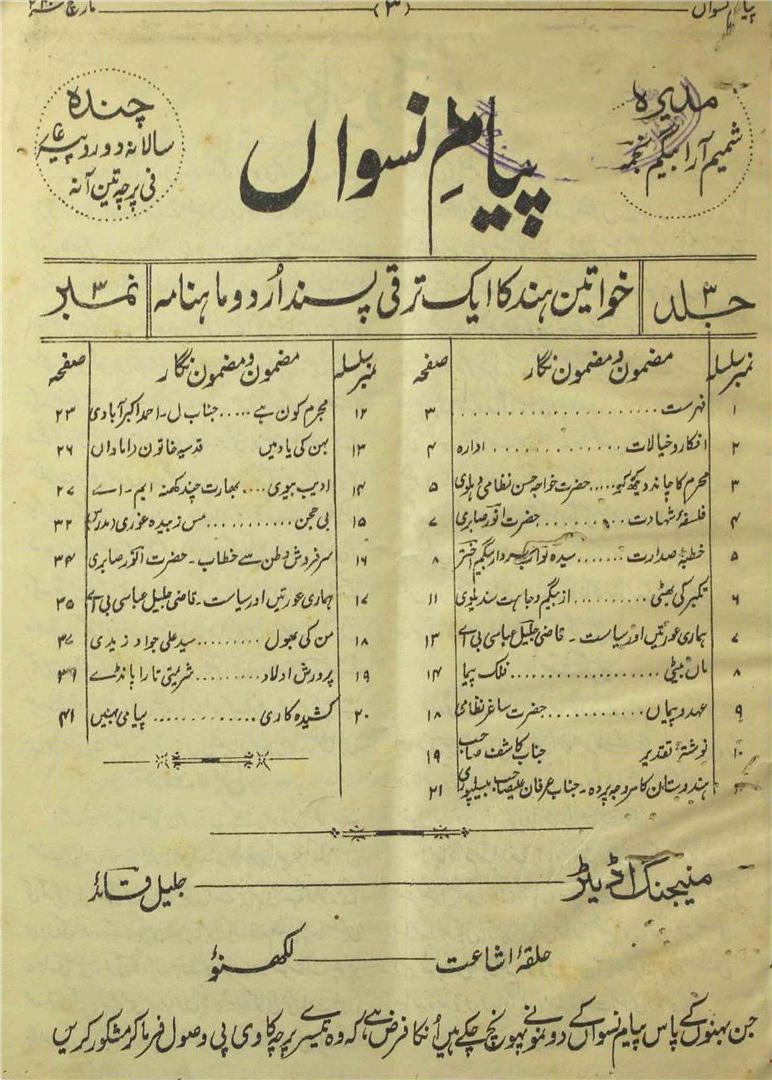 پیام نسواں (۳) مارچ
مدیرہ
شمیم آرا بیگم نجمہ
پیامِ نسواں
چندہ
سالانہ دو روپیہ
فی پرچہ تین آنہ
جلد ۳ خواتین ہند کا ایک ترقی پسند اُردو ماہنامہ نمبر ۳
نمبر سلسلہ مضمون و مضمون نگار صفحہ
۱ فہرست ۳
۲ افکار و خیالات ادارہ ۴
۳ محرم کا چاند دیکھ کر حضرت خواجہ حسن نظامی دہلوی ۵
۴ فلسفۂ شہادت حضرت انور صابری ۷
۵ خطبۂ صدارت سیدہ نواب سردار بیگم اختر ۸
۶ تکبیر کی بھٹی از بیگم وجاہت سندیلوی ۱۱
۷ ہماری عورتیں اور سیاست ۔ قاضی جلیل عباسی بی اے ۱۳
۸ ماں بیٹی فلک پیما ۱۴
۹ عہد و پیماں حضرت ساغر نظامی ۱۸
۱۰ نوشتۂ تقدیر جناب کاشف صاحب ۱۹
ہندوستان کا مروجہ پردہ ۔ جناب عرفان علیصاحب بیسلپوری ۲۱
نمبر سلسلہ مضمون و مضمون نگار صفحہ
۱۲ مجرم کون ہے جناب ل ۔ احمد اکبرآبادی ۲۳
۱۳ بہن کی یاد میں قدسیہ خاتون ۲۶
۱۴ ادیب بیوی بھارت چند کھنہ ایم ۔ اے ۲۷
۱۵ بی ججن مس زبیدہ غوری ۳۲
۱۶ سرفروش وطن سے خطاب ۔ حضرت انور صابری ۳۴
۱۷ ہماری عورتیں اور سیاست ۔ قاضی جلیل عباسی بی اے ۳۵
۱۸ من کی بھول سید علی جواد زیدی ۳۷
۱۹ پرورش اولاد شریمتی تارا پانڈے ۳۹
۲۰ کشیدہ کاری پیامی بہنیں ۴۱
منیجنگ اڈیٹر جلیل قائد
حلقۂ اشاعت لکھنؤ
جن بہنوں کے پاس پیام نسواں کے دو نمونے پہونچ چکے ہیں اُنکا فرض ہے کہ وہ تیسرے پرچہ کا وی پی وصول فرما کر مشکور کریں